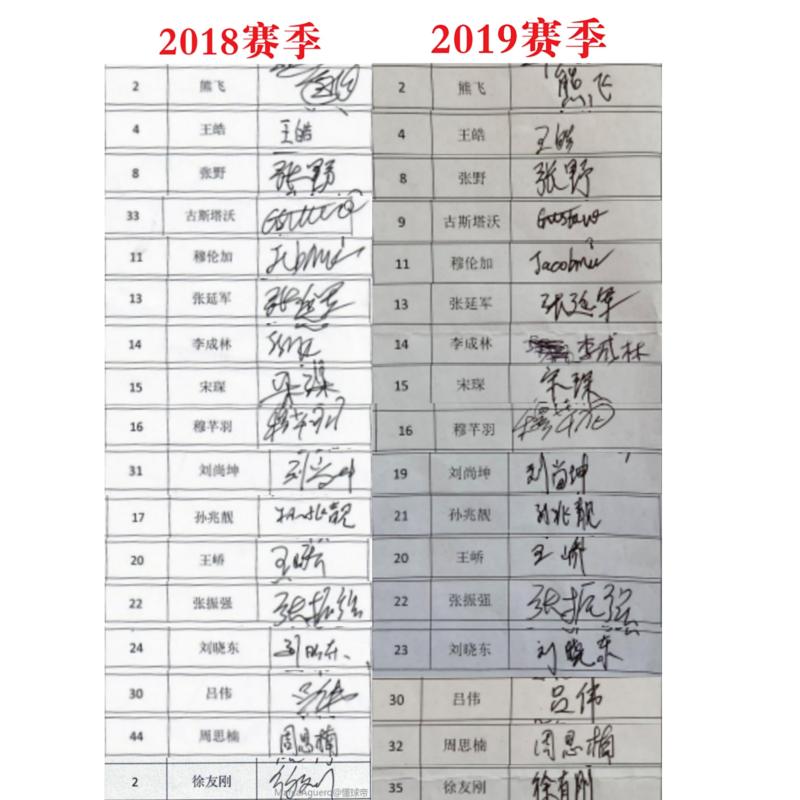 2018赛季 2019赛季
2 熊飞 2 熊飞 熊飞
4 王皓 王皓 4 王皓 王皓
8 张野 张野 8 张野 张野
33 古斯塔沃 9 古斯塔沃 Gustavo
11 穆伦加 11 穆伦加
13 张延军 张延军 13 张延军 张延军
14 李成林 14 李成林 李成林
15 宋琛 宋琛 15 宋琛 宋琛
16 穆芊羽 16 穆芊羽
31 刘尚坤 19 刘尚坤 刘尚坤
17 孙兆靓 孙兆靓 21 孙兆靓 孙兆靓
20 王峤 20 王峤 王峤
22 张振强 张振强 22 张振强 张振强
24 刘晓东 刘晓东 23 刘晓东 刘晓东
30 吕伟 吕伟 30 吕伟 吕伟
44 周思楠 周思楠 32 周思楠 周思楠
2 徐友刚 35 徐友刚 徐有刚
@懂球帝